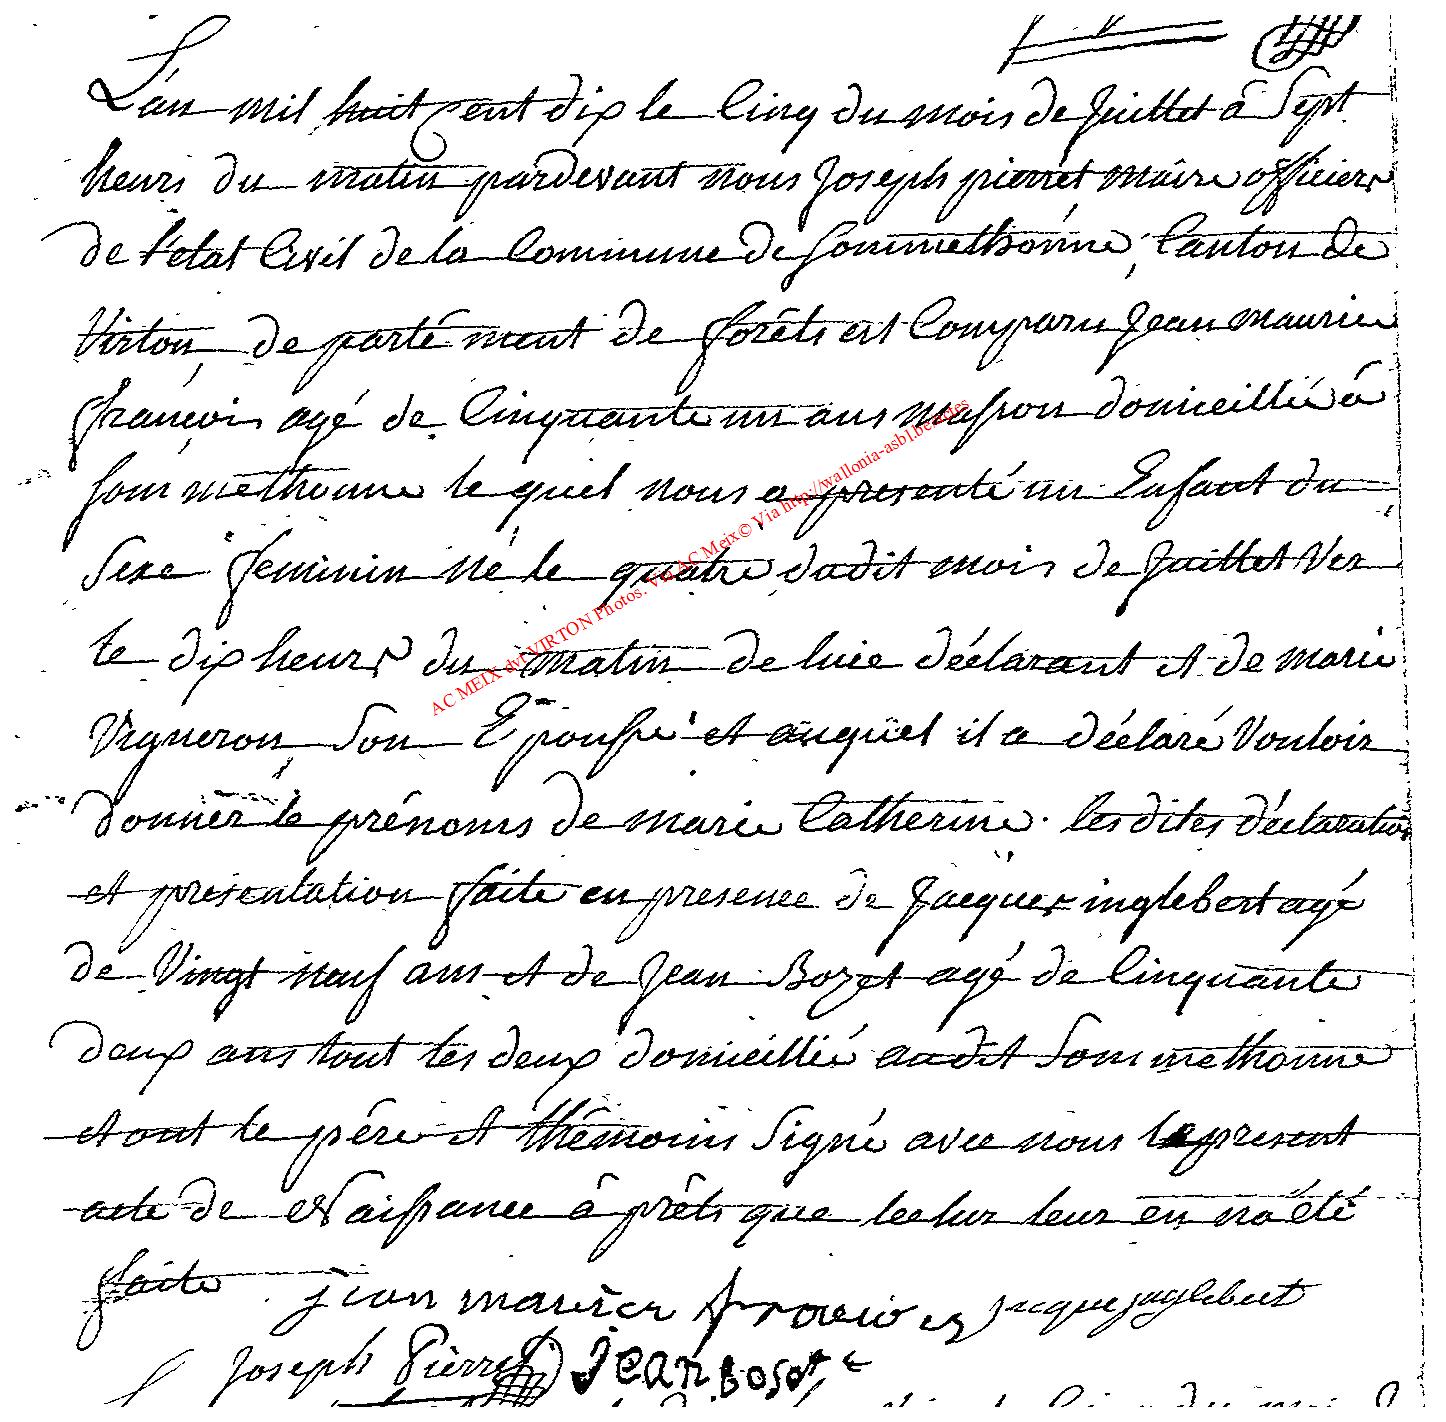 L'an mil huit cent dix le Cinq du mois de Juillet â Sept
heurs du matin pardevant nous Joseph pierrèt mâire officiers
de l'etat Civil de la Commune de Sommethonne, Canton de
Virton, departément de forêts est Comparu Jean maurice
françois agé de Cinquante un ans masson domicillié á
Sommethonne le quel nous a presenté un Enfant du
Sexe feminin né le quatre dudit mois de Juillet Ver
te dix heurs du matin de luie déclarant et de marie
Vigneron, Son Epousse et auquel il a déclaré Vouloir
donner le prénoms de marie Catherine. les dites déclaration
et présentation faite en presence de Jacques inglebert agé
de Vingt neuf ans et de Jean Bozet agé de Cinquante
deux ans tout les deux domicillié audit Sommethonne
et ont le père et thémoins Signé avec nous le present
acte de Naissance â prêts que lectur leur en nà été
faite jean maurice francois jacque jnglebert
Joseph Pierret Jean Bosot
AC MEIX dvt VIRTON Photos. Via AC Meix© Via http://wallonia-asbl.be/actes